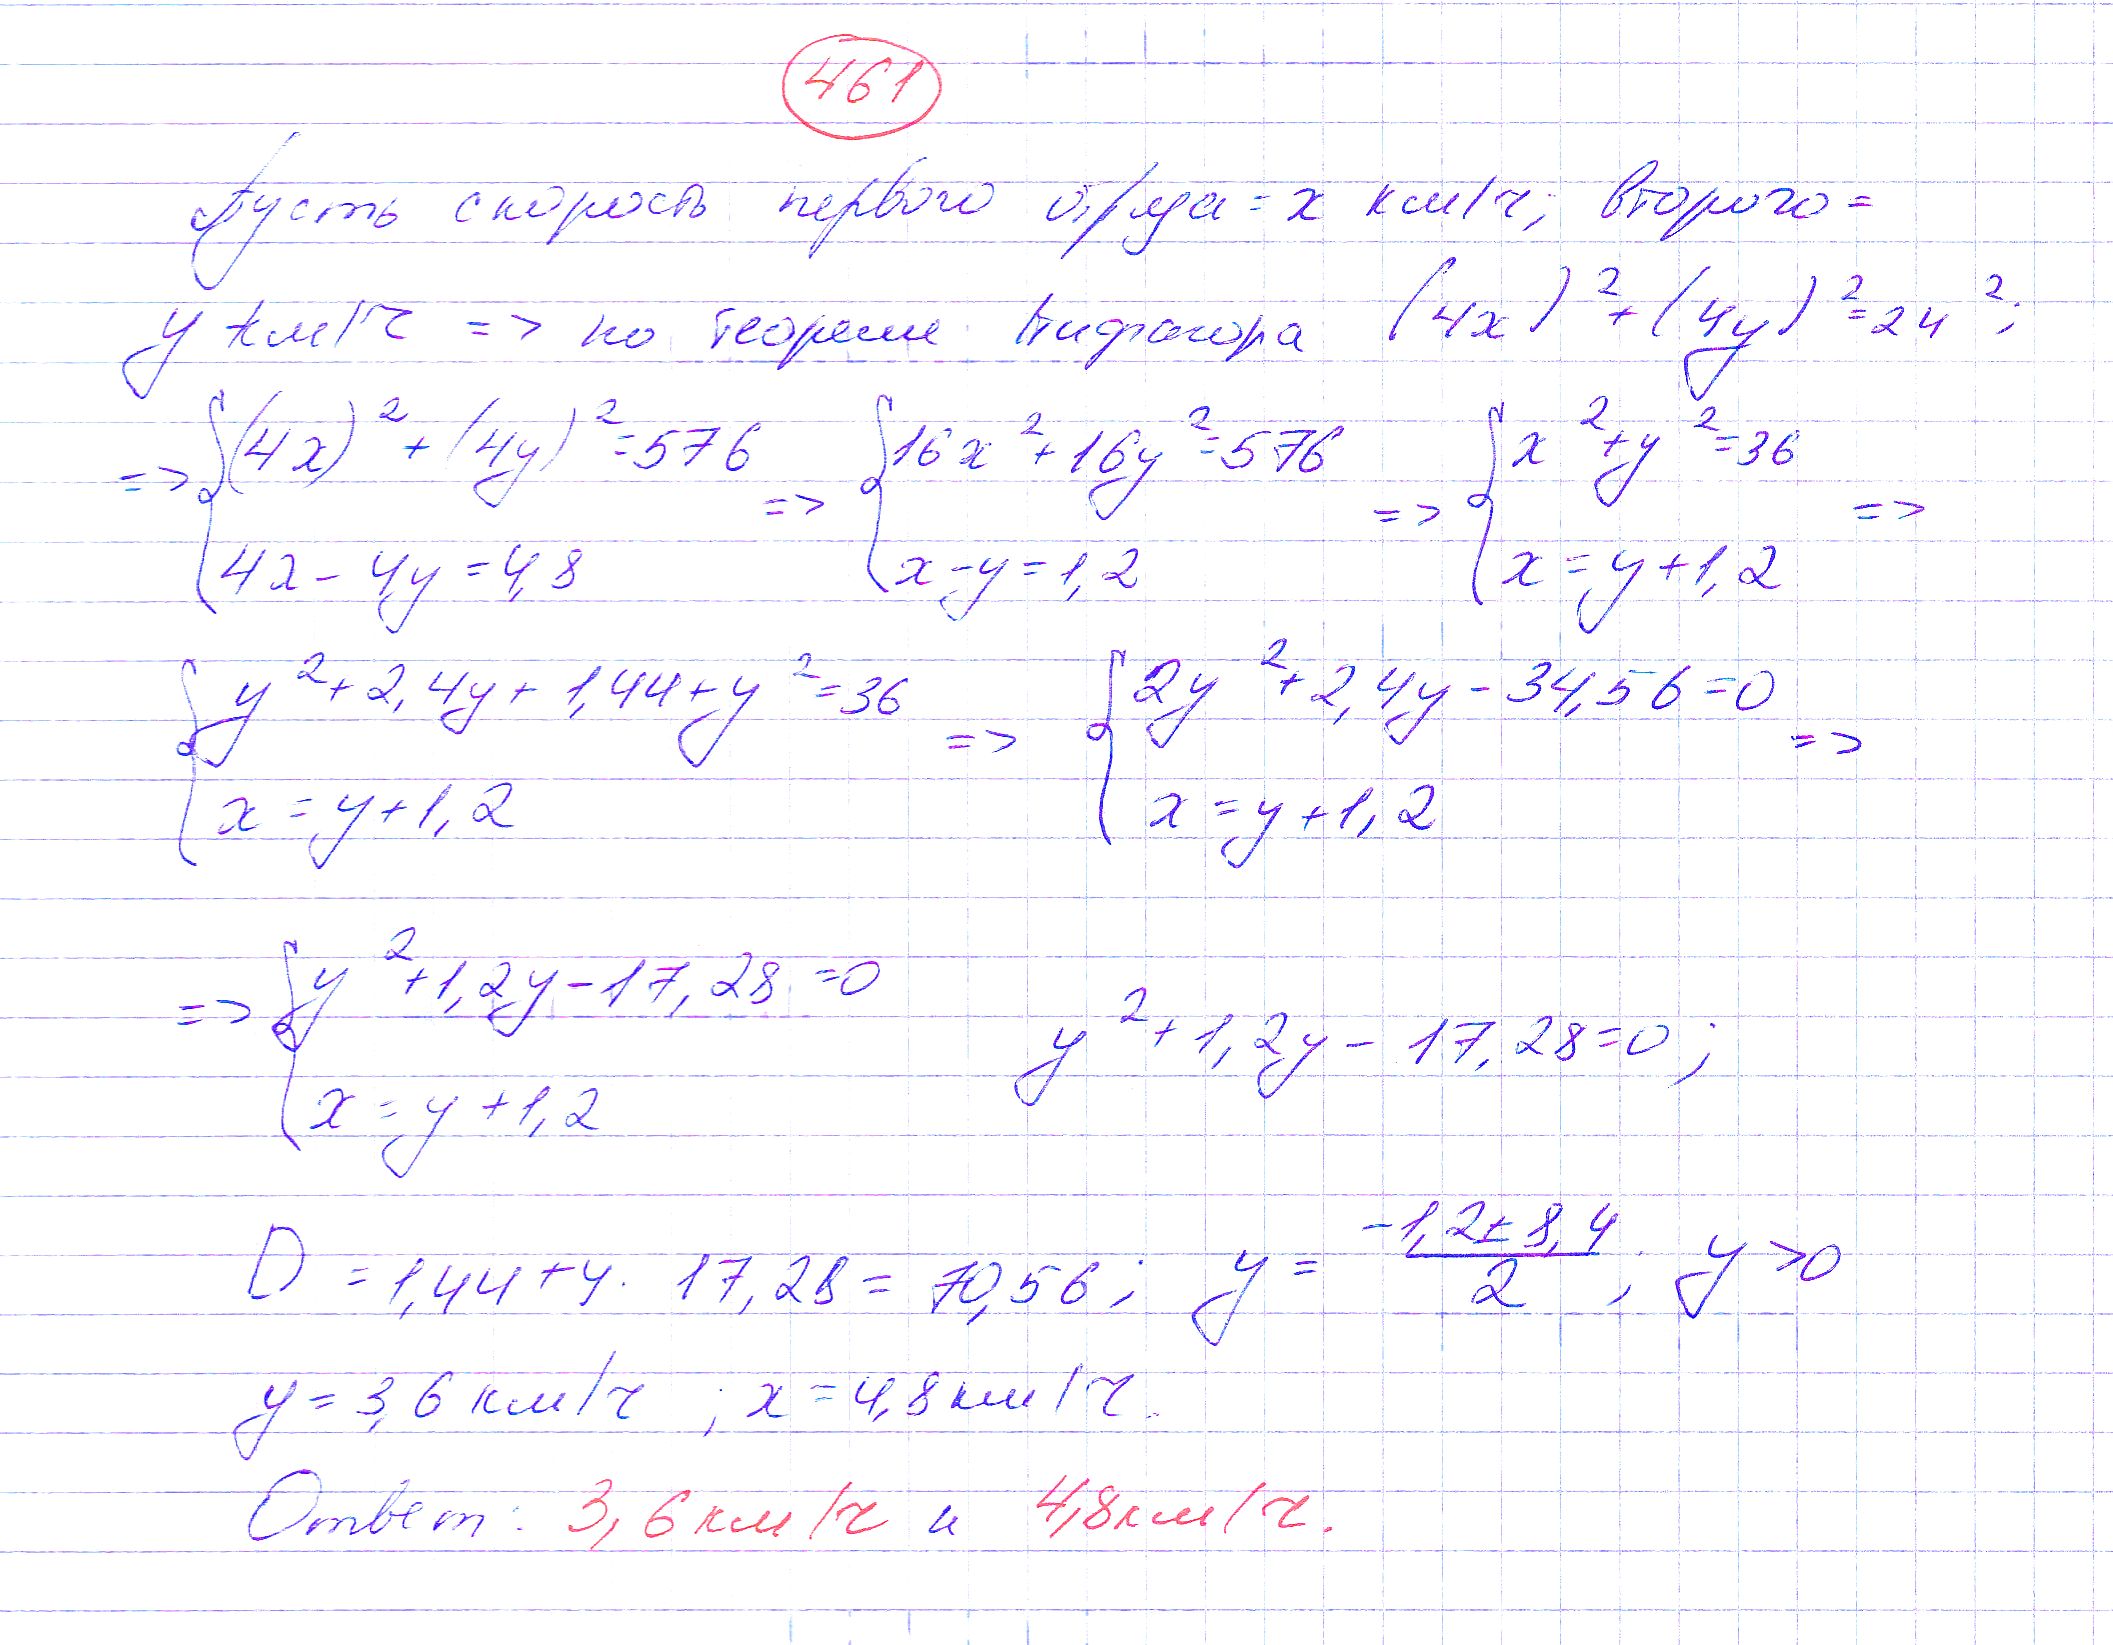 461
Пусть скорость первого отряда = x км/ч; второго =
y км/ч => по теореме Пифагора (4x)² + (4y)² = 24²;
=> { (4x)² + (4y)² = 576 => { 16x² + 16y² = 576 => { x² + y² = 36 =>
4x - 4y = 4,8 x - y = 1,2 x = y + 1,2
{ y² + 2,4y + 1,44 + y² = 36 => { 2y² + 2,4y - 34,56 = 0 =>
x = y + 1,2 x = y + 1,2
=> { y² + 1,2y - 17,28 = 0 y² + 1,2y - 17,28 = 0;
x = y + 1,2
D = 1,44 + 4 · 17,28 = 70,56; y = (-1,2 ± 8,4)/2; y > 0
y = 3,6 км/ч; x = 4,8 км/ч.
Ответ: 3,6 км/ч и 4,8 км/ч.